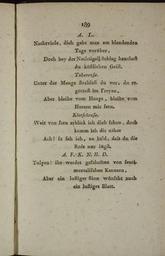 189
A. L.
Nachtviole, dich geht man am blendenden
Tage vorüber,
Doch bey der Nachtigall Schlag hauchest
du köstlichen Geist.
Tuberose.
Unter der Menge strahlest du vor, du er-
götzest im Freyen,
Aber bleibe vom Haupt, bleibe vom
Herzen mir fern.
Klatschrose.
Weit von fern erblick ich dich schon, doch
komm ich dir näher
Ach! so seh ich, zu bald, daß du die
Rose nur lügst.
A. F. K. N. H. D.
Tulpen! ihr werdet gescholten von senti-
mentalischen Kennern,
Aber ein lustiger Sinn wünscht auch
ein lustiges Blatt.